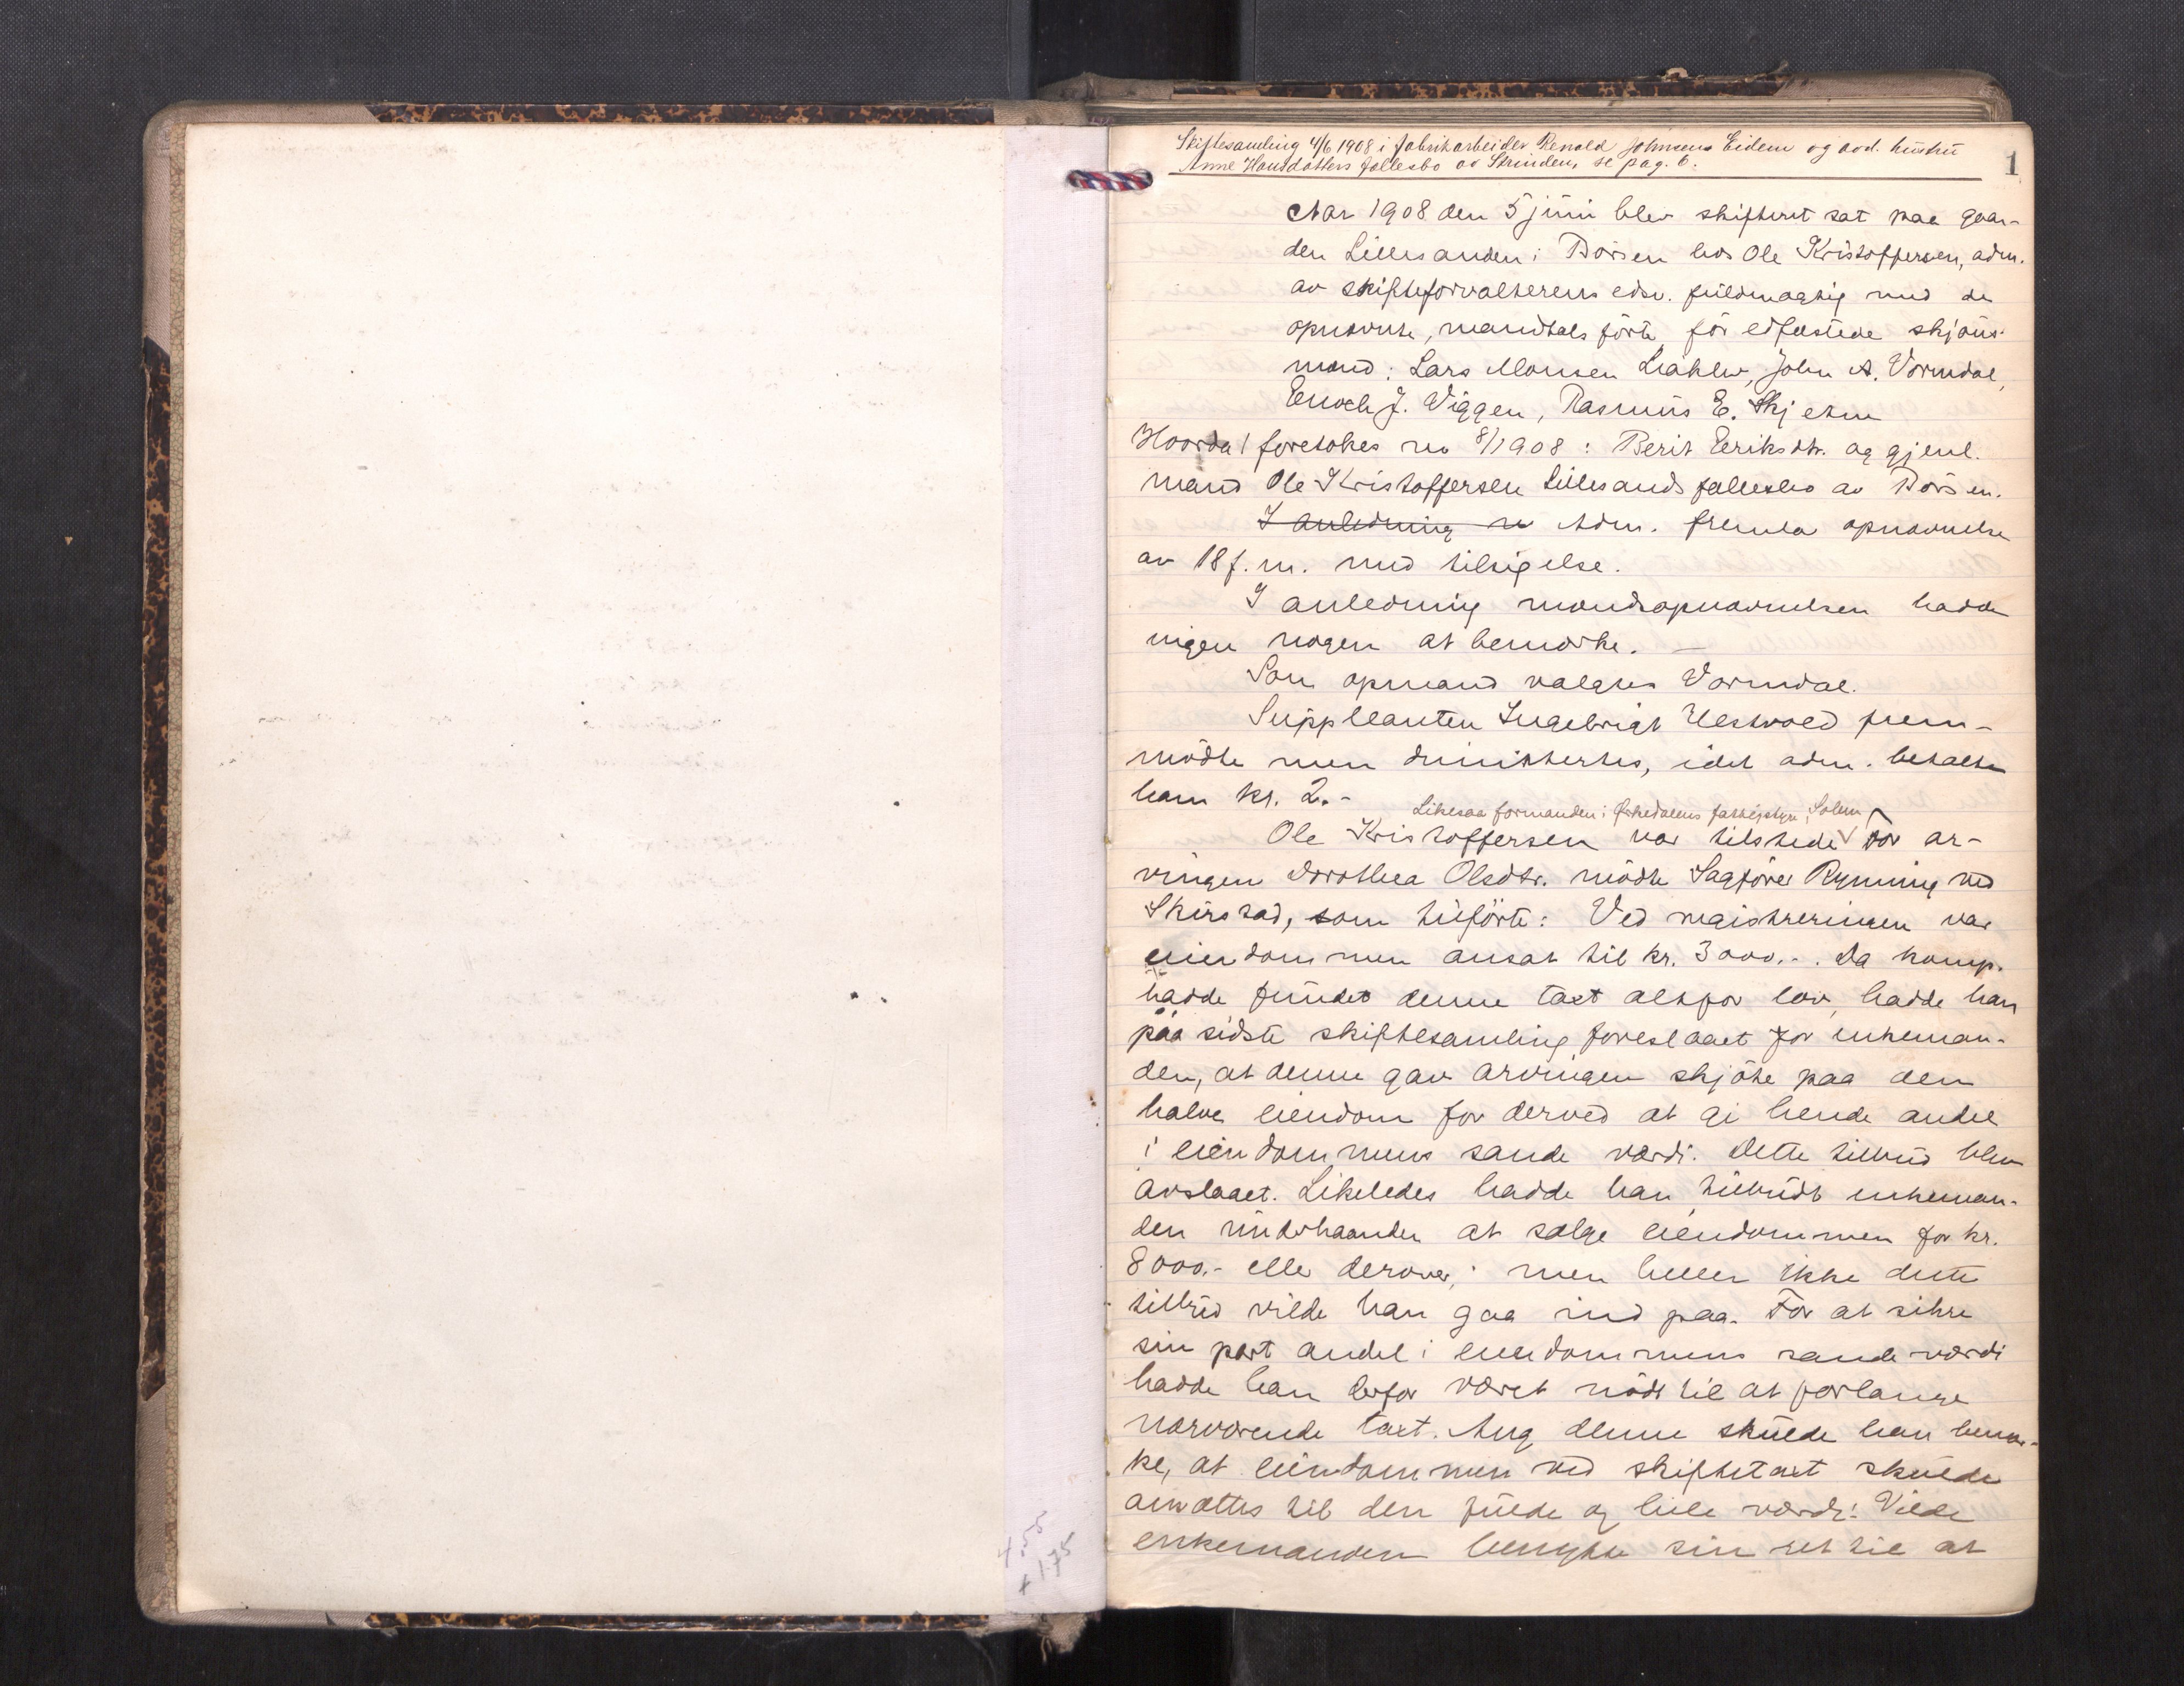 Skiftesamling 4/6 1908 i fabrikarbeider Renald Johnsens Eidem og avd. hustru
Anne Hansdatters fællesbo av Strinden, se pag. 6.
1
Aar 1908 den 5 juni blev skifteret sat paa gaar-
den Lillesanden i Börsen hos Ole Kristoffersen, adm.
av skifteforvalterens edsv. fuldmægtig med de
opnævnte, mandtalsförte, för edfæstede skjöns-
mænd: Lars Monsen Liahlen, John A. Vormdal,
Enoch J. Viggen, Rasmus E. Skjetne
Hvorda/ foretokes no 8/1908: Berit Eeriksdtr. og gjenl.
mand Ole Kristoffersen Lillesands fællesbo av Börsen.
I anledning Adm. fremla opnævnelse
av 18 f. m. med tilsigelse.
I anledning mandsopnævnelsen hadde
ingen nogen at bemærke. –
Som opmand valgtes Vormdal.
Suppleanten Ingebrigt Ulstvoed frem-
mödte men dimittertes, idet adm. betalte
ham kr. 2.-
Likesaa formanden i Orkedalens fattigstyre, Solem
Ole Kristoffersen var tilstede For ar-
vingen Dorothea Olsdtr. mödte Sagförer Rynning ved
Skirstad, som tilförte: Ved registreringen var
eiendommen ansat til kr. 3000.-. Da komp.
hadde fundet denne taxt altfor lav, hadde han
paa sidste skiftesamling foreslaaet for enkeman-
den, at denne gav arvingen skjöte paa den
halve eiendom for derved at gi hende andel
i eiendommens sande værdi. Dette tilbud blev
avslaaet. Likeledes hadde han tilbudt enkeman-
den underhaanden at sælge eiendommen for kr.
8000.- eller derover; men heller ikke dette
tilbud vilde han gaa ind paa. For at sikre
sin part andel i eiendommens sande værdi
hadde han derfor været nödt til at forlange
nærværende taxt. Ang denne skulde han bemær-
ke, at eiendommen ved skiftetaxt skulde
ansættes til den fulde og hele værdi. Vilde
enkemanden benytte sin ret til at
4.55
+ 1.75